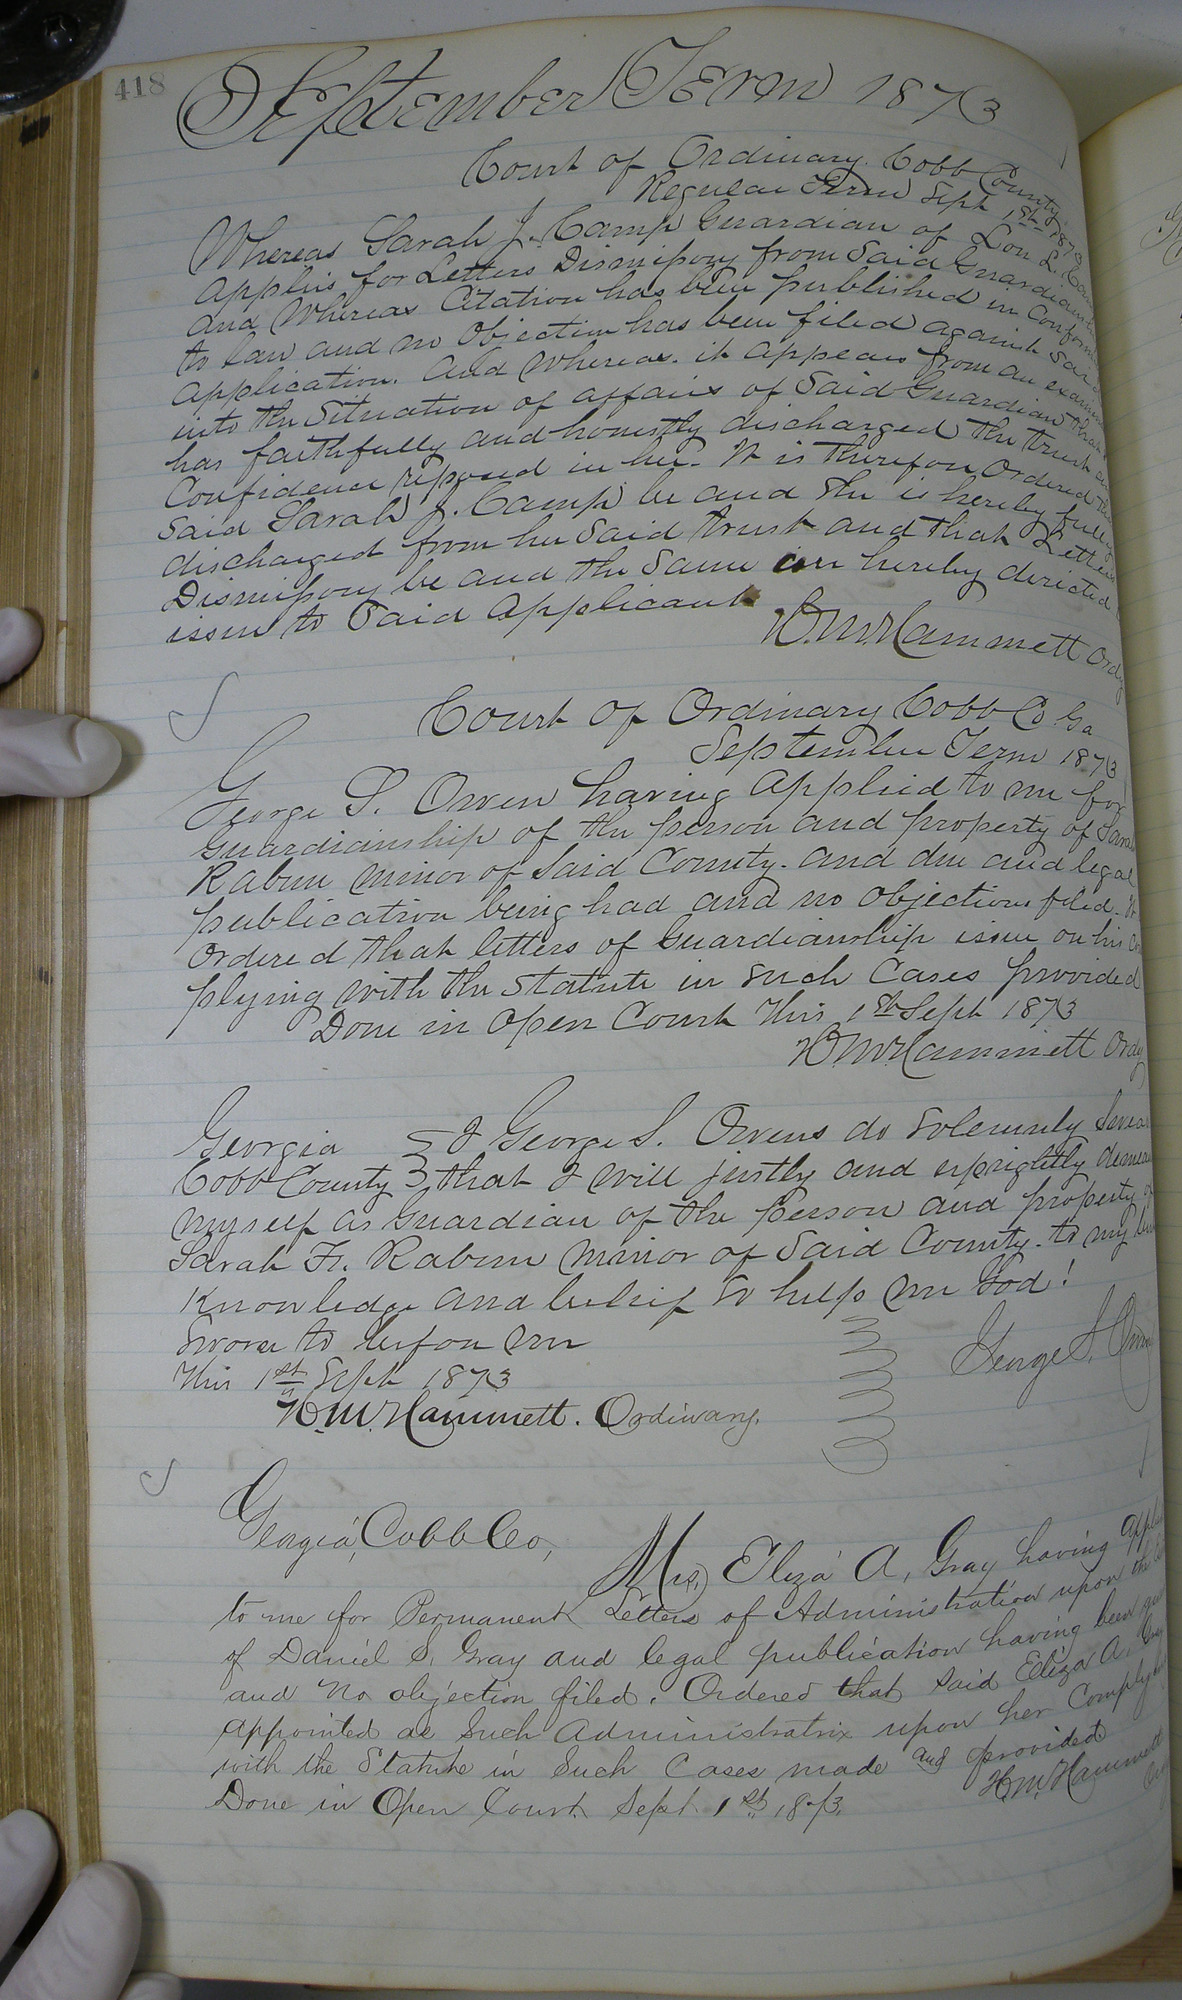 418
September Term 1873
Court of Ordinary. Cobb County
Regular Term Sept 1st 1873
Whereas Sarah J. Camp Guardian of Lon L. Camp
applies for Letters Dismissory from Said Guardianship
and Whereas Citation has been published in Conformity
to law and no Objection has been filed against said
application. And whereas it appears from an
into the Situation of affairs of Said Guardian that
has faithfully and honestly discharged the trust and
Confidence reposed in her. It is therefore Ordered that
Said Sarah J. Camp be and She is hereby fully
discharged from her Said trust and that Letters
Dismissory be and the Same are hereby directed
issue to Said Applicant
H. M. Hammett Ordy
Court of Ordinary Cobb Co. Ga
September Term 1873
George S. Owen having applied to me for
Guardianship of the person and property of Sarah
Rabun minor of Said County. and due and legal
publication being had and no objections filed. It
Ordered that letters of Guardianship issue on his
plying with the Statute in Such Cases provided
Done in Open Court this 1st Sept 1873
H. M. Hammett Ordy
Georgia } I George S. Owens do Solemnly Swear
Cobb County } that I will justly and uprightly demean
myself as Guardian of the person and property of
Sarah F. Rabun minor of Said County. to my best
Knowledge and belief So help me God!
Sworn to before me
This 1st Sept 1873
George S. Owen
H. M. Hammett. Ordinary.
Georgia, Cobb Co,
Mrs, Eliza A, Gray having applied
to me for Permanent Letters of Administration upon the
of Daniel S, Gray and legal publication having been
and no objection filed. Ordered that said Eliza A. Gray
appointed as Such Administratrix upon her Complying
with the Statute in Such Cases made and provided
Done in Open Court Sept 1st 1873.
H. M. Hammett